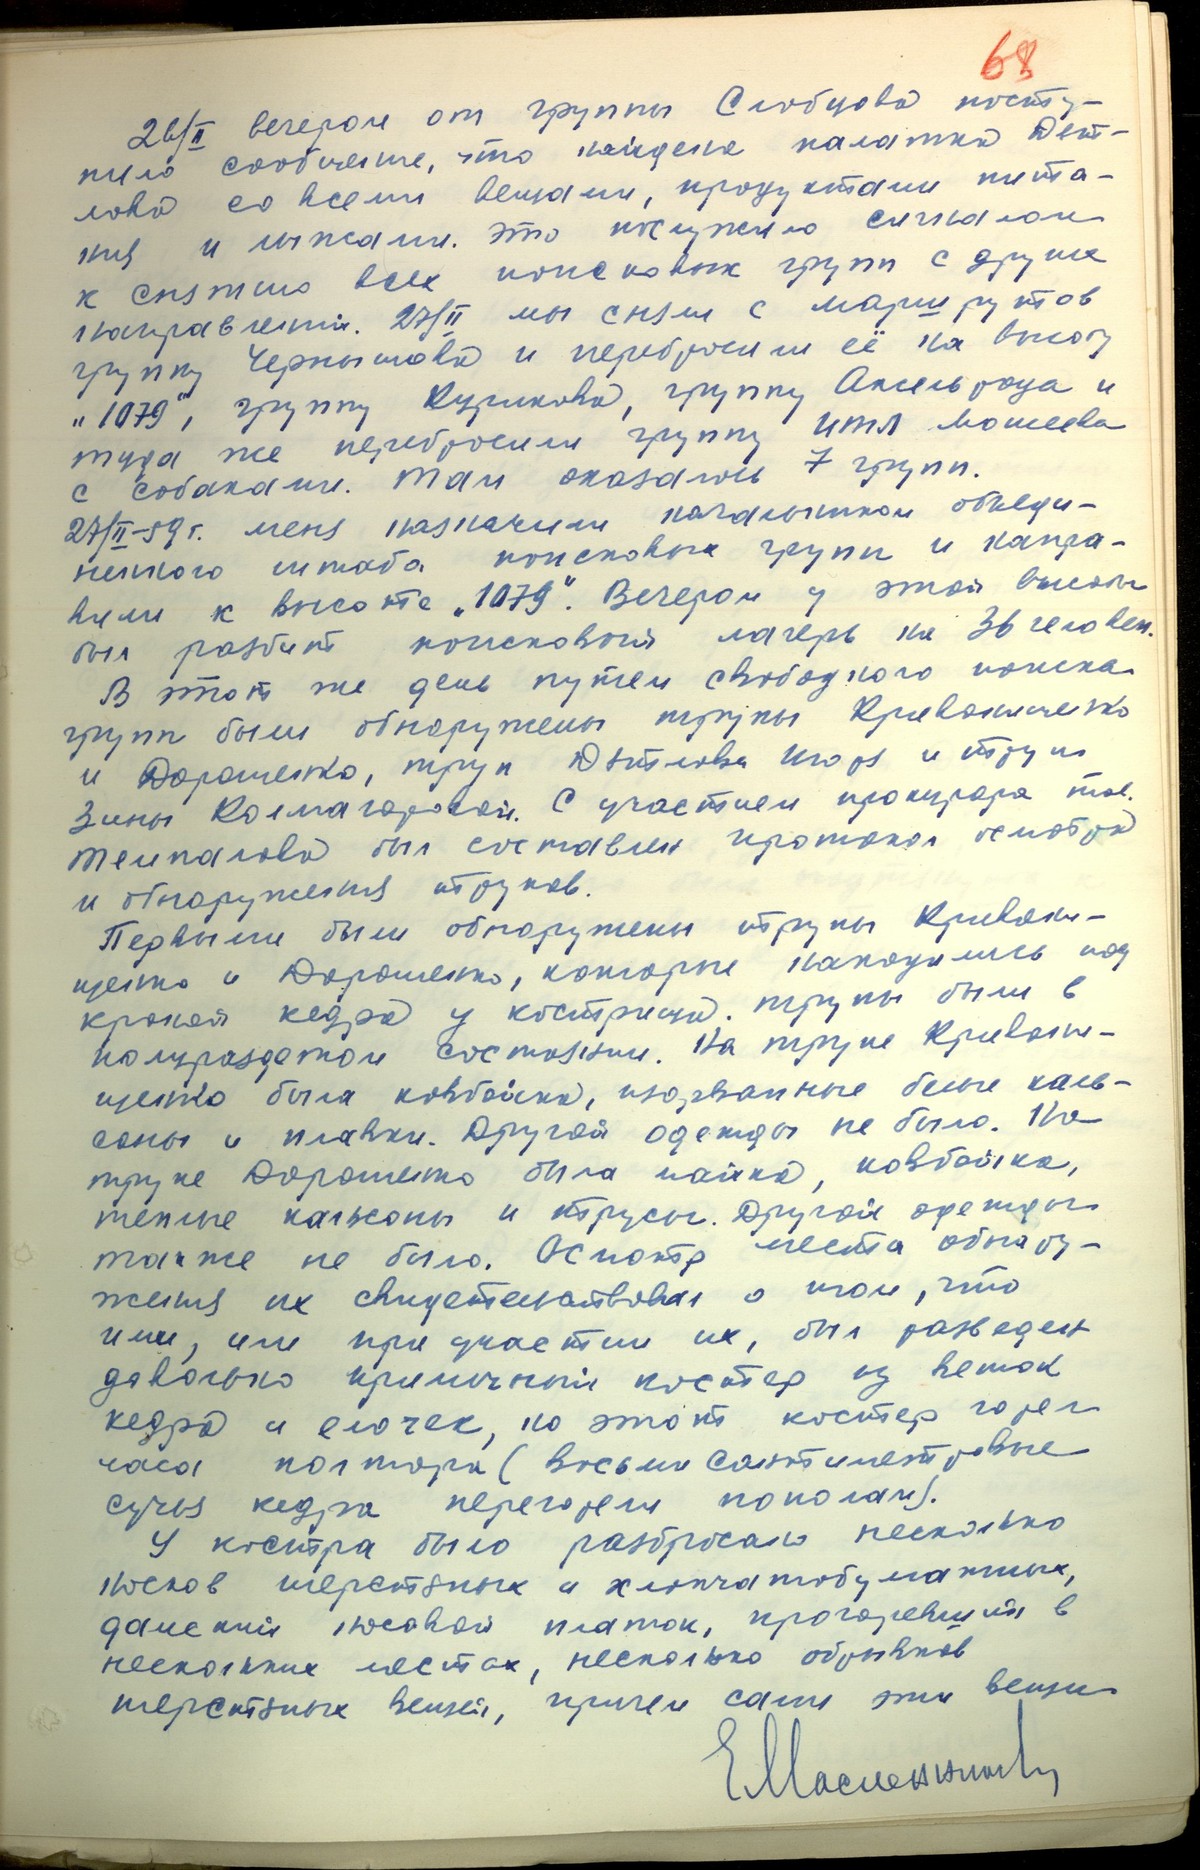 68
26/II вечером от группы Слобцова посту-
пило сообщение, что найдена палатка Дят-
лова со всеми вещами, продуктами пита-
ния и лыжами. Это послужило сигналом
к снятию всех поисковых групп с других
направлений. 27/II мы сняли с маршрутов
группу Чернышова и перебросили её на высоту
„1079", группу Курикова, группу Аксельрода и
туда же перебросили группу ИТЛ Мошеева
с собаками. Там оказалось 7 групп.
27/II-59 г. меня назначили начальником объеди-
ненного штаба поисковых групп и напра-
вили к высоте „1079". Вечером у этой высоты
был разбит поисковый лагерь на 36 человек.
В этот же день путем свободного поиска
групп были обнаружены трупы Кривонищенко
и Дорошенко, труп Дятлова Игоря и труп
Зины Колмагоровой. С участием прокурора тов.
Темпалова был составлен протокол осмотра
и обнаружения трупов.
Первыми были обнаружены трупы Кривони-
щенко и Дорошенко, которые находились под
кроной кедра у кострища. Трупы были в
полураздетом состоянии. На трупе Кривони-
щенко была ковбойка, изорванные белые каль-
соны и плавки. Другой одежды не было. На
трупе Дорошенко была майка, ковбойка,
теплые кальсоны и трусы. Другой одежды
также не было. Осмотр места обнару-
жения их свидетельствовал о том, что
ими, или при участии их, был разведен
довольно приличный костер из веток
кедра и елочек, но этот костер горел
часа полтора (восьми сантиметровые
сучья кедра перегорели пополам).
У костра было разбросано несколько
носков шерстяных и хлопчатобумажных,
дамский носовой платок, прогоревший в
нескольких местах, несколько обрывков
шерстяных вещей, причем сами эти вещи
Е Масленников